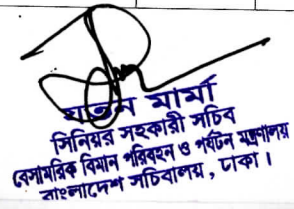 যতন মার্মা
সিনিয়র সহকারী সচিব
বেসামরিক বিমান পরিবহন ও পর্যটন মন্ত্রণালয়
বাংলাদেশ সচিবালয়, ঢাকা।